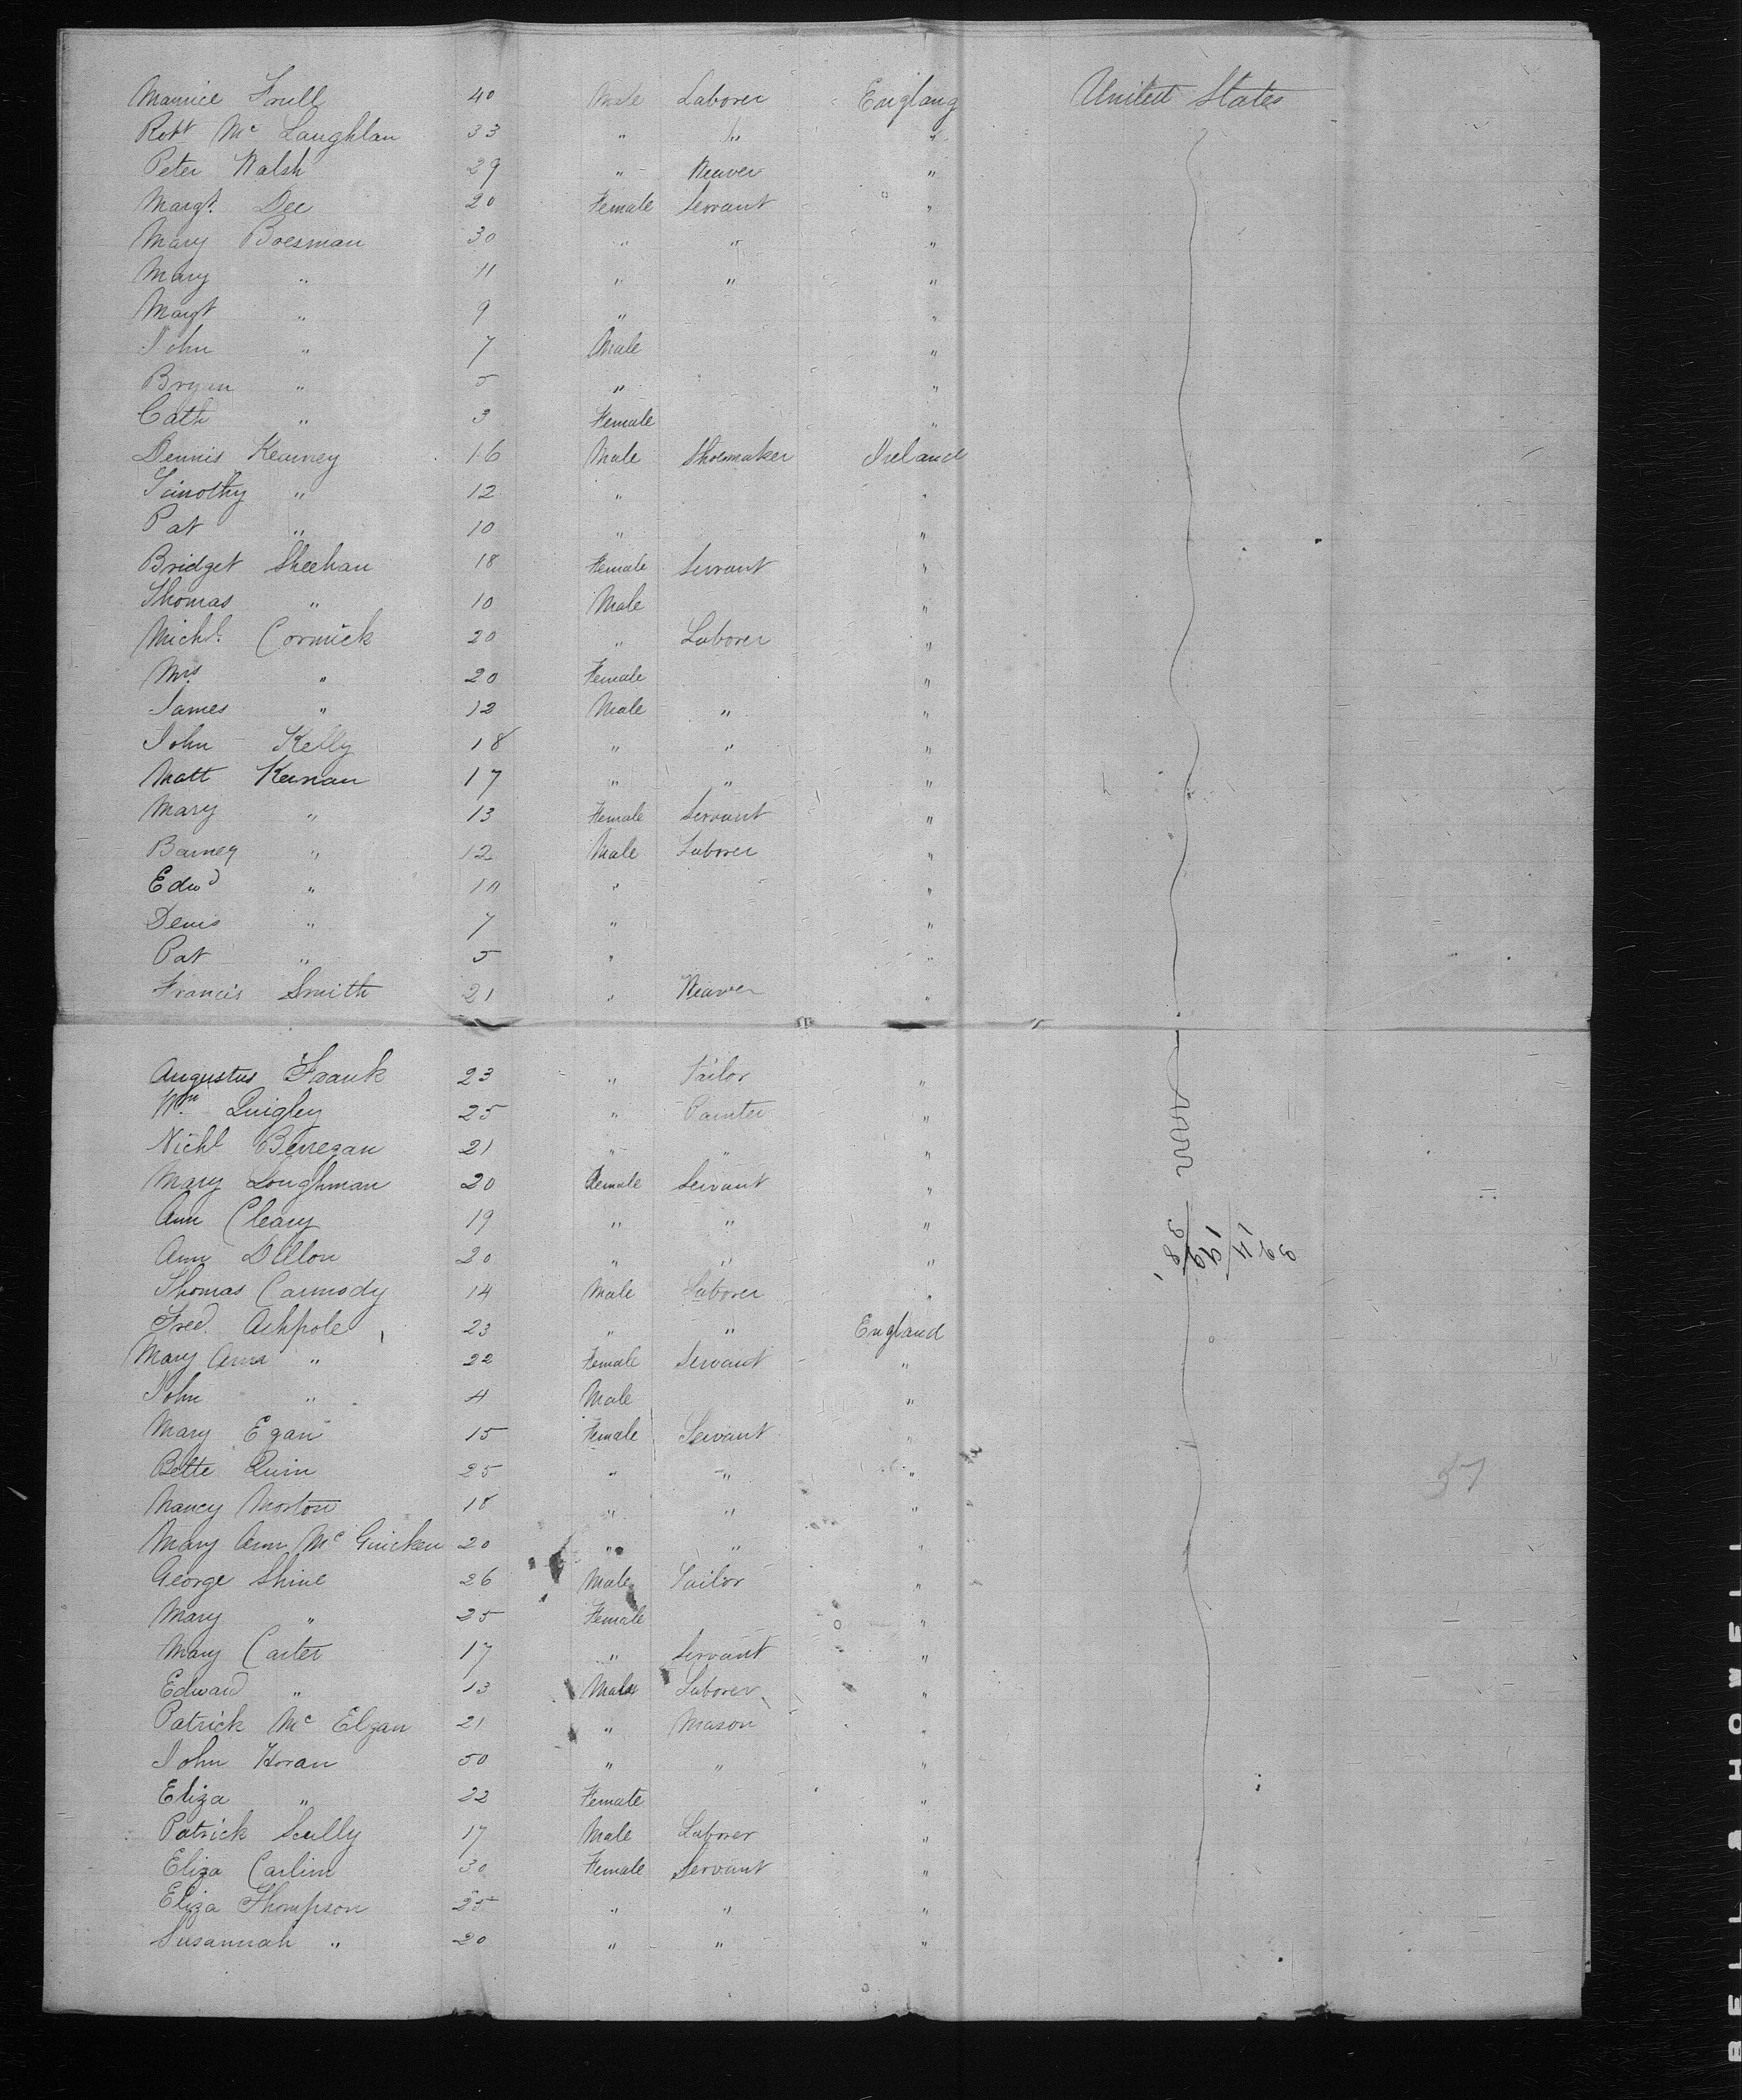 Maurice Trull 40 Male Laborer England United States
Robt Mc Laughlan 33 " " "
Peter Walsh 29 " Weaver "
Margt. Dee 20 Female Servant "
Mary Boesman 30 " " "
Mary " 11 " " "
Margt " 9 " "
John " 7 Male "
Bryan " 5 " "
Cath " 3 Female "
Dennis Kearney 16 Male Shoemaker Ireland
Timothy " 12 " "
Pat " 10 " "
Bridget Sheehan 18 Female Servant "
Thomas " 10 Male "
Michl. Cormick 20 " Laborer "
Mrs " 20 Female "
James " 12 Male " "
John Kelly 18 " " "
Matt Keenan 17 " " "
Mary " 13 Female Servant "
Barney " 12 Male Laborer "
Edwd " 10 " "
Denis " 7 " "
Pat " 5 " "
Francis Smith 21 " Weaver "
Augustus Frank 23 " Tailor "
Wm Quigley 25 " Painter "
Nichl Berregan 21 " " "
Mary Loughman 20 Female Servant "
Ann Cleary 19 " " "
Ann Dillon 20 " " "
Thomas Carmody 14 Male Laborer "
Fred. Ashpole 23 " " England
Mary Ann " 22 Female Servant "
John " 4 Male "
Mary Egan 15 Female Servant "
Bette Quin 25 " " "
Nancy Morton 18 " " "
Mary Ann Mc Guicken 20 " " "
George Shine 26 Male Tailor "
Mary " 25 Female "
Mary Carter 17 " Servant "
Edward " 13 Male Laborer "
Patrick Mc Elgan 21 " Mason "
John Horan 50 " " "
Eliza " 22 Female "
Patrick Scully 17 Male Laborer "
Eliza Carlin 30 Female Servant "
Eliza Thompson 25 " " "
Susannah " 20 " " "
57
BELL & HOWELL